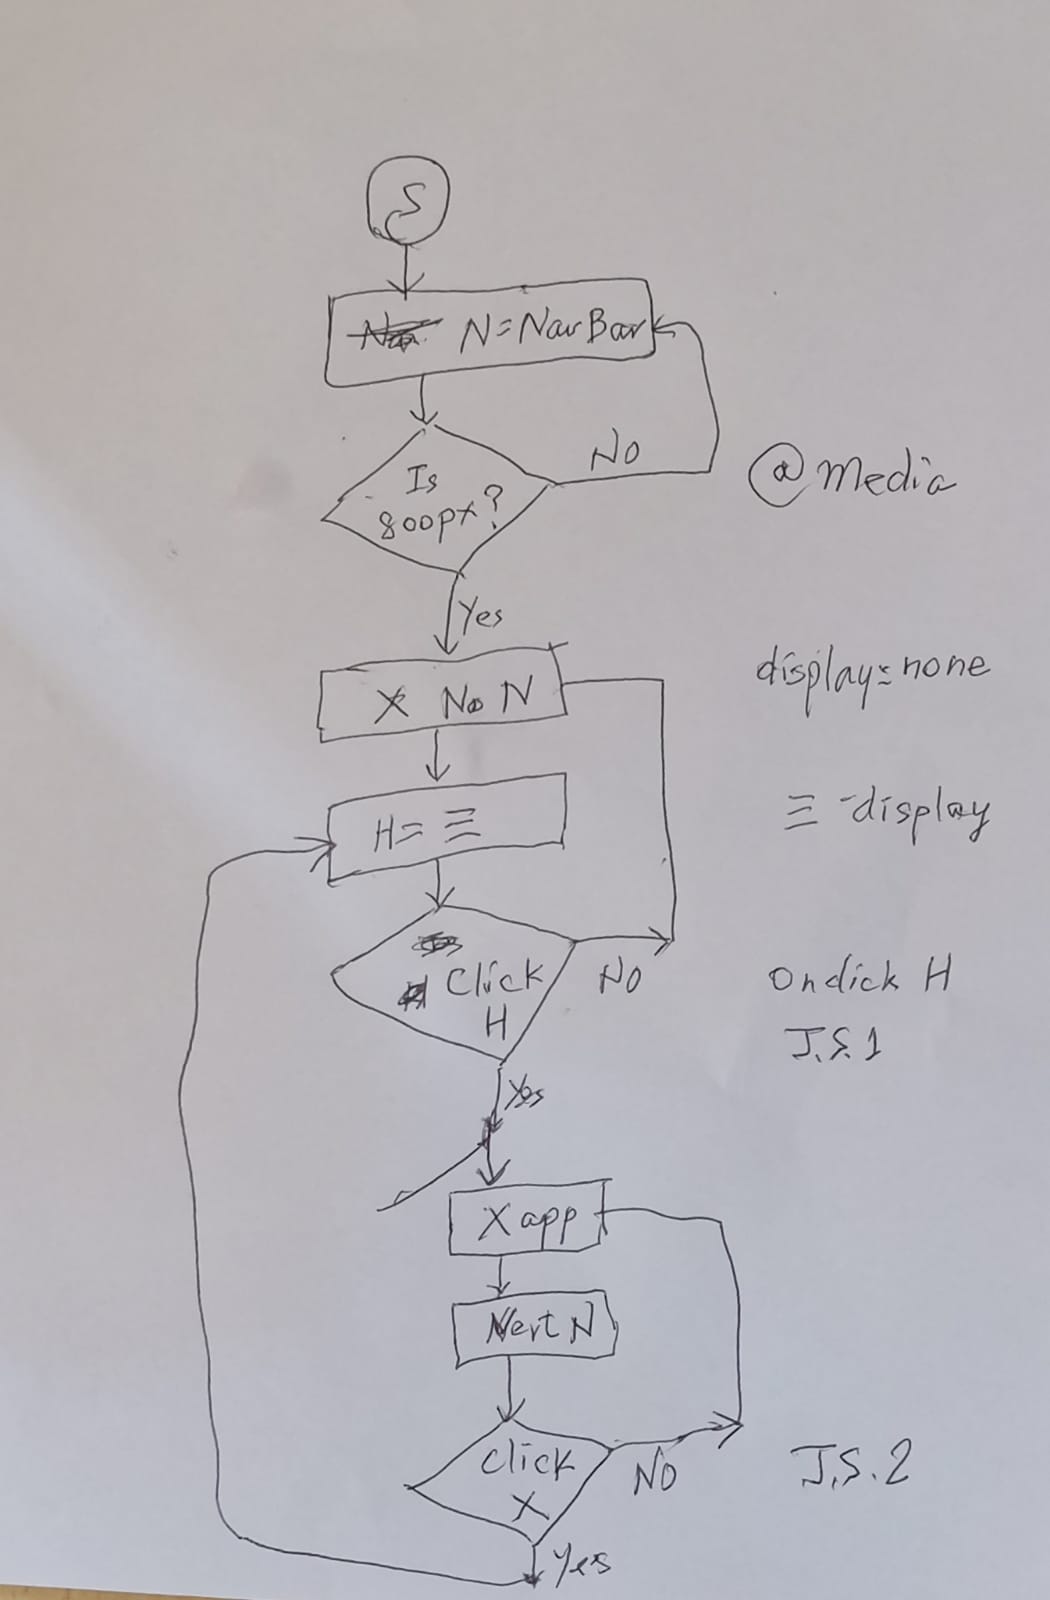 S
N=NavBar
No
Is
800px?
@media
Yes
X No N
display=none
H= ☰
☰ -display
Click
H
No
Onclick H
J.S.1
Yes
X app
Vert N
Click
X
No
J.S.2
Yes